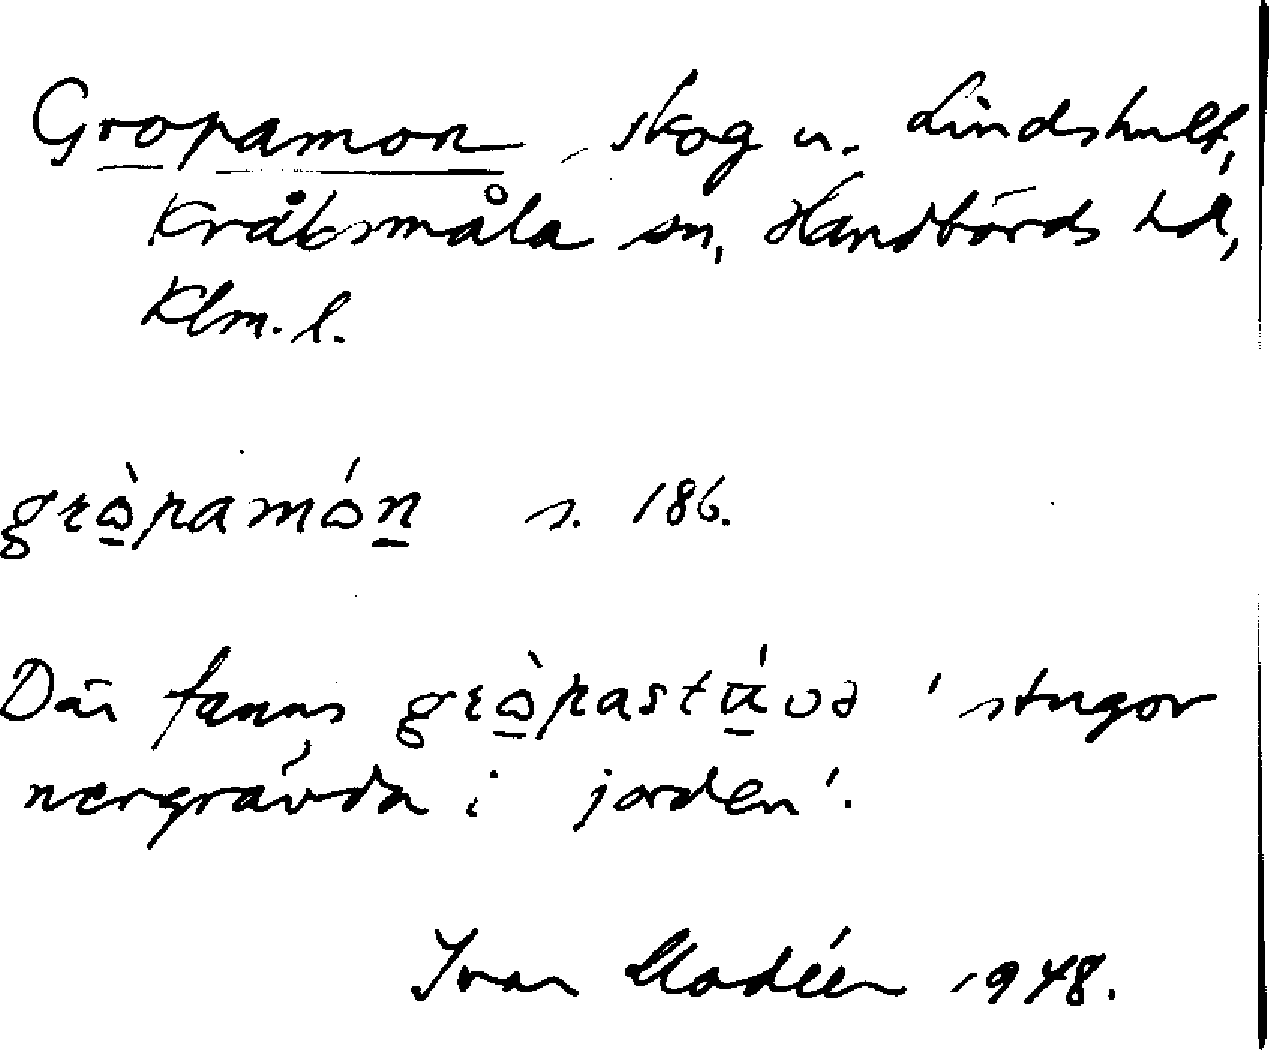 Gropamon, skog u. Lindshult,
Kråksmåla sn, Handbörds hd,
Klm. l.
grὼpamón s. 186.
Där fanns grὼpastúvə 'stugor
nergrävda i jorden'.
Ivar Modéer 1948.